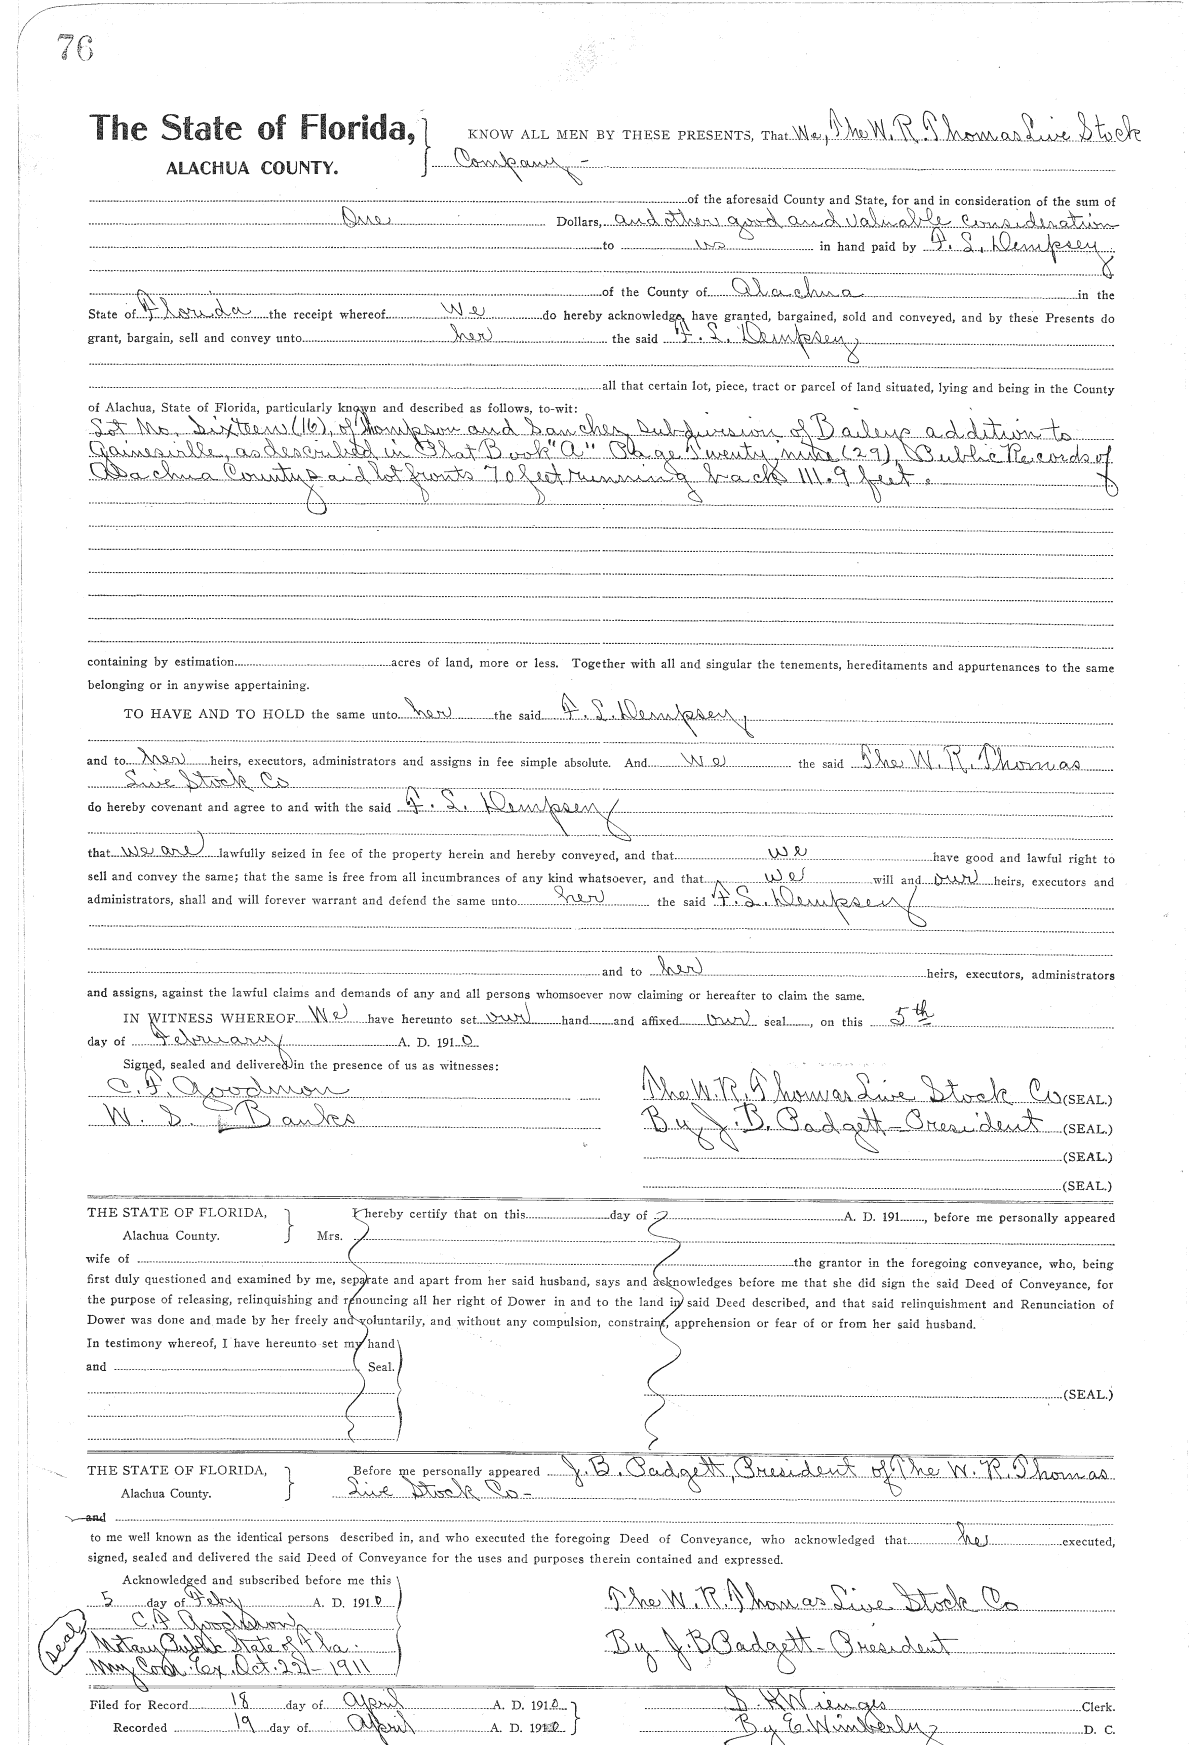 76
The State of Florida,
ALACHUA COUNTY.
KNOW ALL MEN BY THESE PRESENTS, That We, The W. R. Thomas Live Stock
Company -
of the aforesaid County and State, for and in consideration of the sum of
One Dollars, and other good and valuable consideration
to us in hand paid by F. L. Dempsey
of the County of Alachua in the
State of Florida the receipt whereof We do hereby acknowledge, have granted, bargained, sold and conveyed, and by these Presents do
grant, bargain, sell and convey unto her the said F. L. Dempsey
all that certain lot, piece, tract or parcel of land situated, lying and being in the County
of Alachua, State of Florida, particularly known and described as follows, to-wit:
Lot No. Sixteen (16), of Thompson and Sanchez Subdivision of Baileys addition to
Gainesville, as described in Plat Book "A" Page Twenty nine (29), Public Records of
Alachua County said lot fronts 70 feet running back 111.9 feet.
containing by estimation acres of land, more or less. Together with all and singular the tenements, hereditaments and appurtenances to the same
belonging or in anywise appertaining.
TO HAVE AND TO HOLD the same unto her the said F. L. Dempsey
and to her heirs, executors, administrators and assigns in fee simple absolute. And we the said The W. R. Thomas
Live Stock Co
do hereby covenant and agree to and with the said F. L. Dempsey
that we are lawfully seized in fee of the property herein and hereby conveyed, and that we have good and lawful right to
sell and convey the same; that the same is free from all incumbrances of any kind whatsoever, and that we will and our heirs, executors and
administrators, shall and will forever warrant and defend the same unto her the said F. L. Dempsey
and to her heirs, executors, administrators
and assigns, against the lawful claims and demands of any and all persons whomsoever now claiming or hereafter to claim the same.
IN WITNESS WHEREOF We have hereunto set our hand and affixed our seal, on this 5th
day of February A. D. 1910
Signed, sealed and delivered in the presence of us as witnesses:
C. F. Goodmon
W. S. Banks
The W. R. Thomas Live Stock Co (SEAL.)
By J. B. Padgett - President (SEAL.)
(SEAL.)
(SEAL.)
THE STATE OF FLORIDA,
Alachua County.
I hereby certify that on this day of A. D. 191, before me personally appeared
Mrs.
wife of the grantor in the foregoing conveyance, who, being
first duly questioned and examined by me, separate and apart from her said husband, says and acknowledges before me that she did sign the said Deed of Conveyance, for
the purpose of releasing, relinquishing and renouncing all her right of Dower in and to the land in said Deed described, and that said relinquishment and Renunciation of
Dower was done and made by her freely and voluntarily, and without any compulsion, constraint, apprehension or fear of or from her said husband.
In testimony whereof, I have hereunto set my hand
and Seal.
(SEAL.)
THE STATE OF FLORIDA,
Alachua County.
Before me personally appeared J. B. Padgett, President of The W. R. Thomas
Live Stock Co -
and
to me well known as the identical persons described in, and who executed the foregoing Deed of Conveyance, who acknowledged that he executed,
signed, sealed and delivered the said Deed of Conveyance for the uses and purposes therein contained and expressed.
Acknowledged and subscribed before me this
5 day of Feby A. D. 1910
C. F. 
Seal
Notary Public State of Fla.
My Com. Ex. Oct. 22 - 1911
The W. R. Thomas Live Stock Co
By J. B Padgett - President
Filed for Record 18 day of April A. D. 1910
Recorded 19 day of April A. D. 1910
S. H Wienges Clerk.
By E. Wimberly D. C.